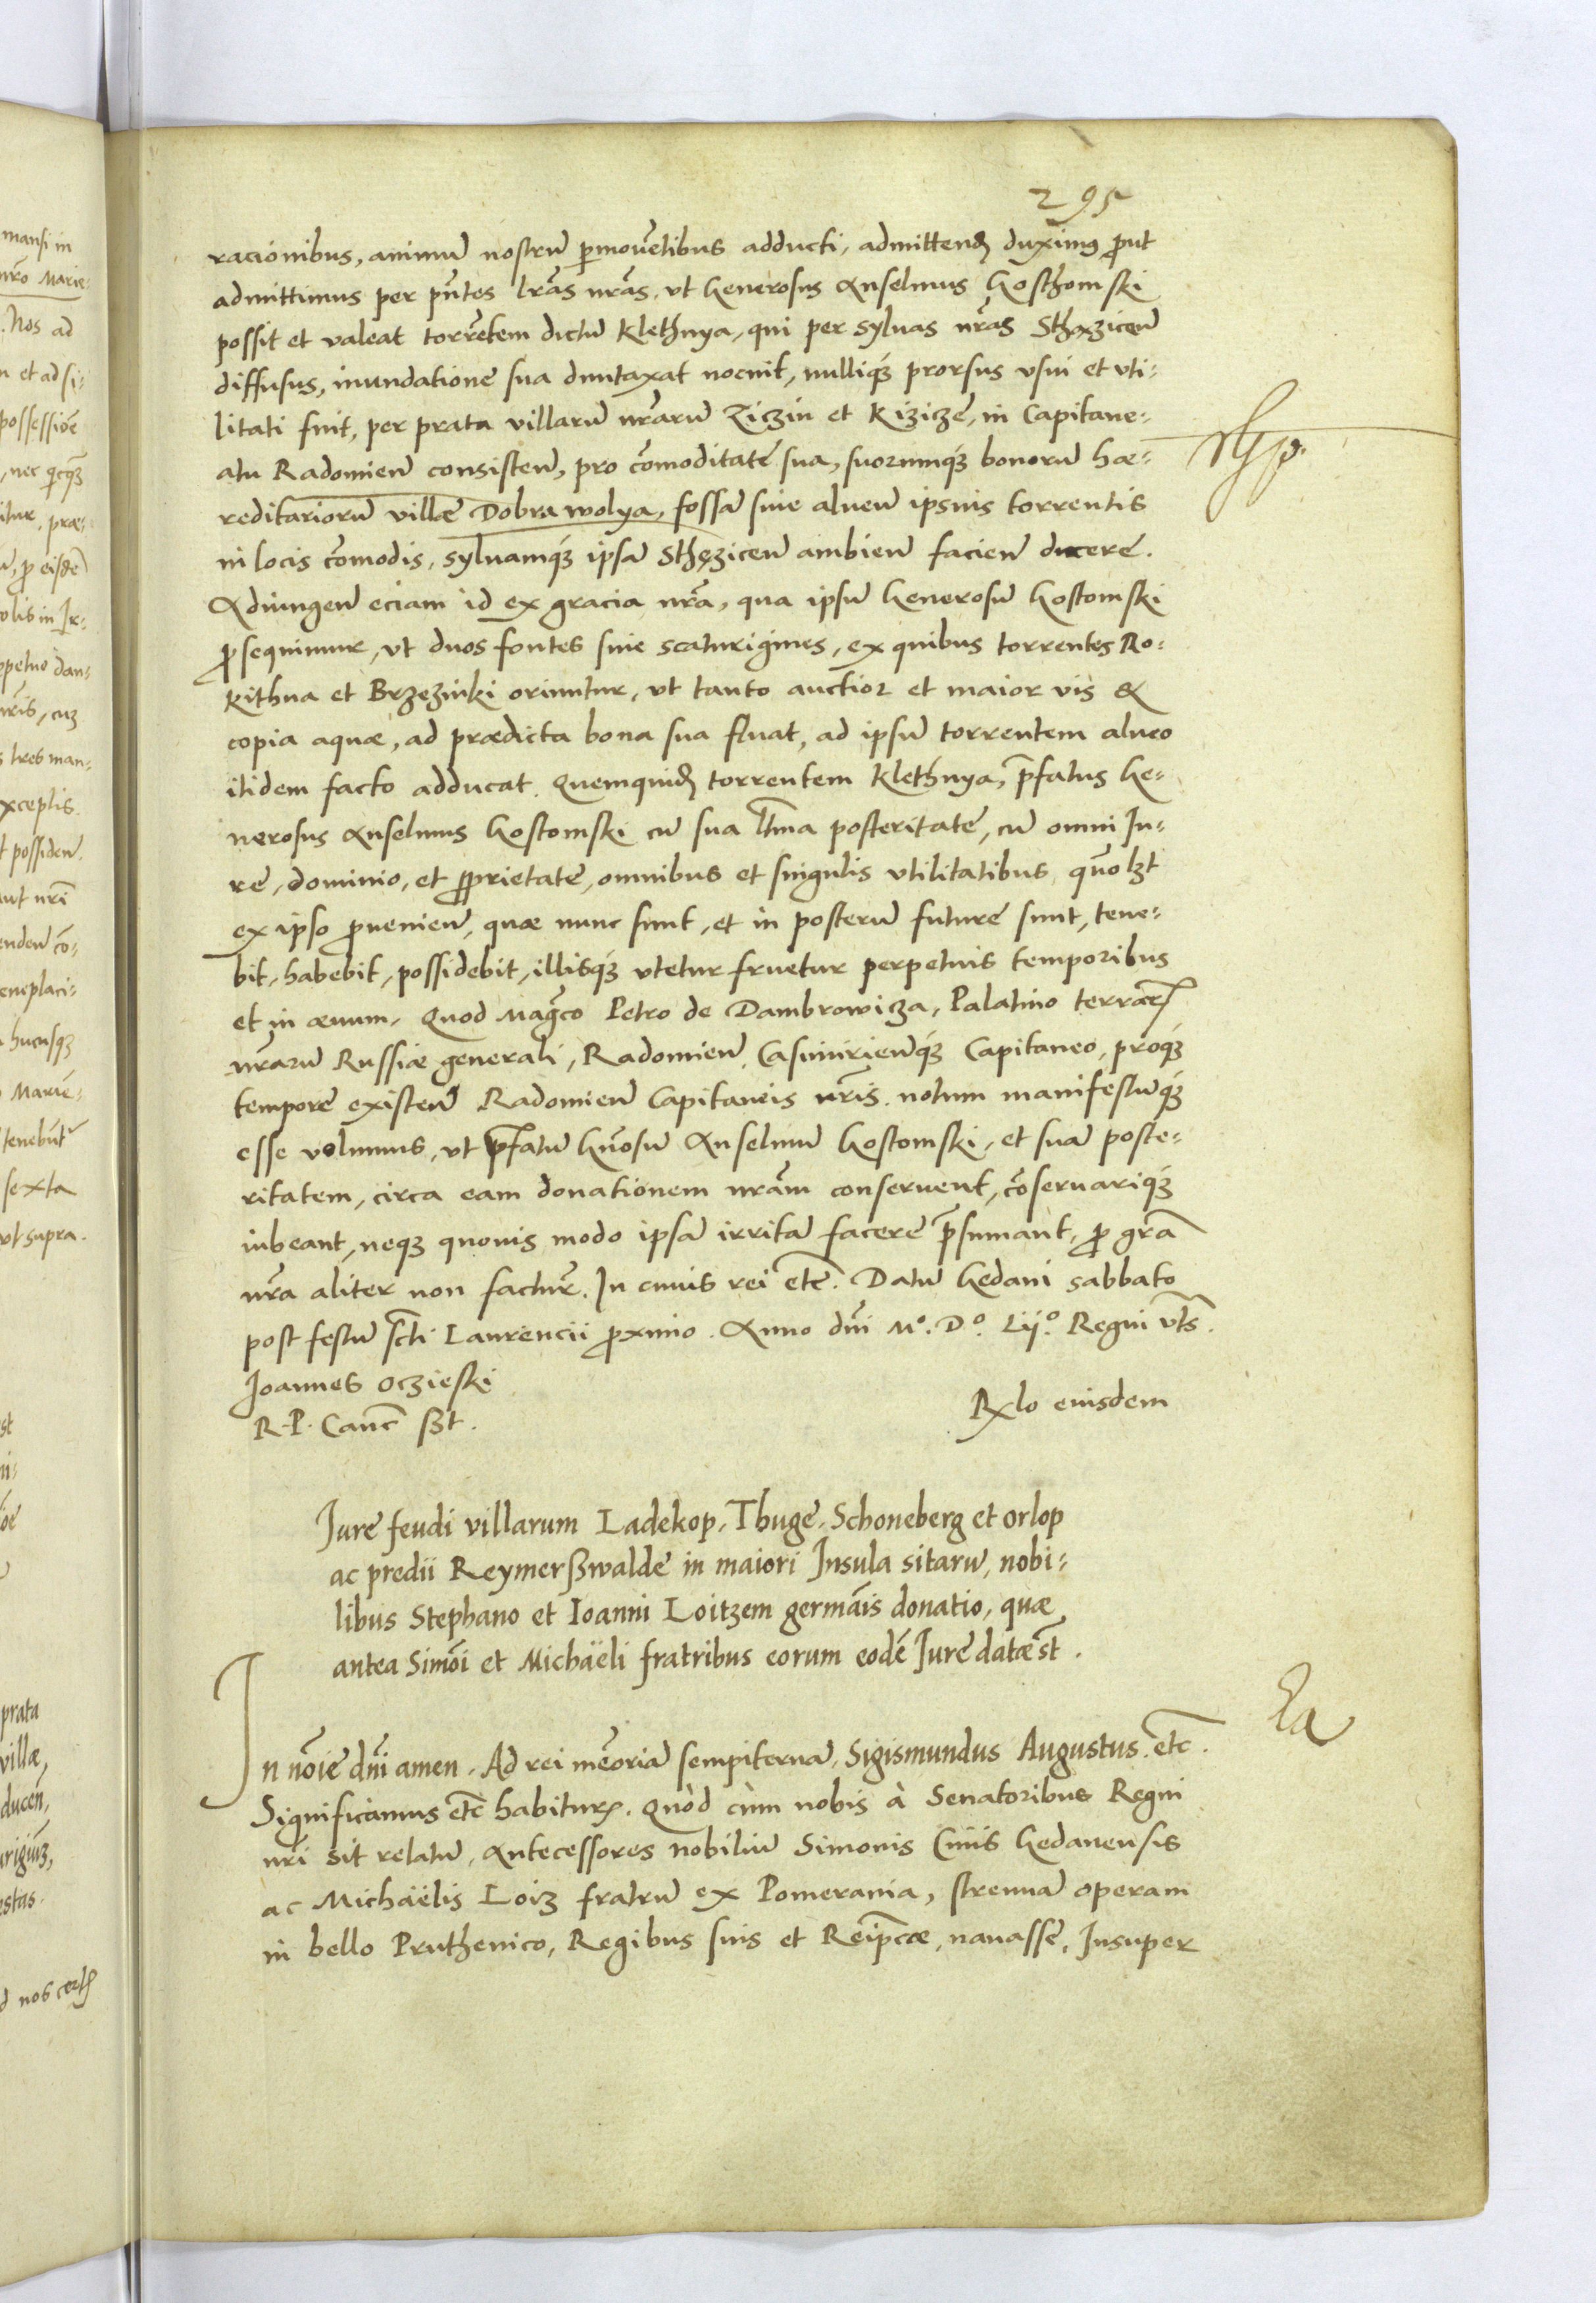 295
racionibus, animū nostrū ꝑmouētibus adducti, admittenđ duximꝰ ꝓut
admittimus per pn̄tes lr̄as nr̄as, vt Generosus Anselmus Gosthomski
possit et valeat torrētem dictū Klethnya, qui per syluas nr̄as Sthęzicen̄
diffusus, inundatione sua duntaxat nocuit, nulliqꝫ prorsus vsui et vti-
litati fuit, per prata villarū nr̄arū Ziczin et Kiziczē, in Capitane-
atu Radomien̄ consisten̄, pro cōmoditate sua, suorumqꝫ bonorū hæ-
reditariorū villæ Dobra wolya, fossā siue alueū ipsius torrentis
in locis cōmodis, syluamqꝫ ipsā Sthęzicen̄ ambien̄ facien̄ ducere.
Adiungen̄ eciam id ex gracia nr̄a, qua ipsū Generosū Gostomski
ꝓsequimur, vt duos fontes siue scaturigines, ex quibus torrentes Ro-
kithna et Brzezinki oriuntur, vt tanto auctior et maior vis &
copia aquæ, ad prædicta bona sua fluat, ad ipsū torrentem alueo
itidem facto adducat. Quemquidꝫ torrentem Klethnya, p̄fatus Ge-
nerosus Anselmus Gostomski cū sua ltīma posteritate, cū omni Iu-
re, dominio, et ꝓprietate, omnibus et singulis vtilitatibus quōlꝫt
ex ipso ꝓuenien̄, quæ nunc sunt, et in posterū future sunt, tene-
bit, habebit, possidebit, illisqꝫ vtetur fruetur perpetuis temporibus
et in æuum. Quod Mag̃co Petro de Dambrowicza, Palatino terrarꝝ
nr̄arū Russiæ generali, Radomien̄ Casimirien̄qꝫ Capitaneo, proqꝫ
tempore existen̄ Radomien̄ Capitaneis nr̄is notum manifestūqꝫ
esse volumus, vt p̄fatū Gn̄osū Anselmū Gostomski, et suā poste-
ritatem, circa eam donationem nr̄am conseruent, cōseruariqꝫ
iubeant, neqꝫ quouis modo ipsā irritā facere p̄sumant, ꝓ gr̄a
nr̄a aliter non facturꝭ. In cuius rei etc̄. Datū Gedani sabbato
post festū sc̄ti Laurencii ꝓximo. Anno dn̄i Mº. Dº. Lijº. Regni vts̄.
Joannes Oczieski
R. P. Canc̄ sßt.
Rxlo eiusdem
Jure feudi villarum Ladekop, Thuge, Schoneberg et Orlop
ac predii Reymerßwalde in maiori Insula sitarū, nobi-
libus Stephano et Ioanni Loitzem germāis donatio, quæ
antea Simōi et Michaëli fratribus eorum eodē Jure data ēst.
Ea
In nōie dn̄i amen. Ad rei mēoriā sempiternā. Sigismundus Augustus. etc̄.
Significamus etc̄ habiturꝭ. Quòd cùm nobis à Senatoribus Regni
nr̄i sit relatū, Antecessores nobiliū Simonis Ciuis Gedanensis
ac Michaëlis Loiz fratrū ex Pomerania, strenuā operam
in bello Pruthenico, Regibus suis et Reip̄cæ, nauasse, Insuper